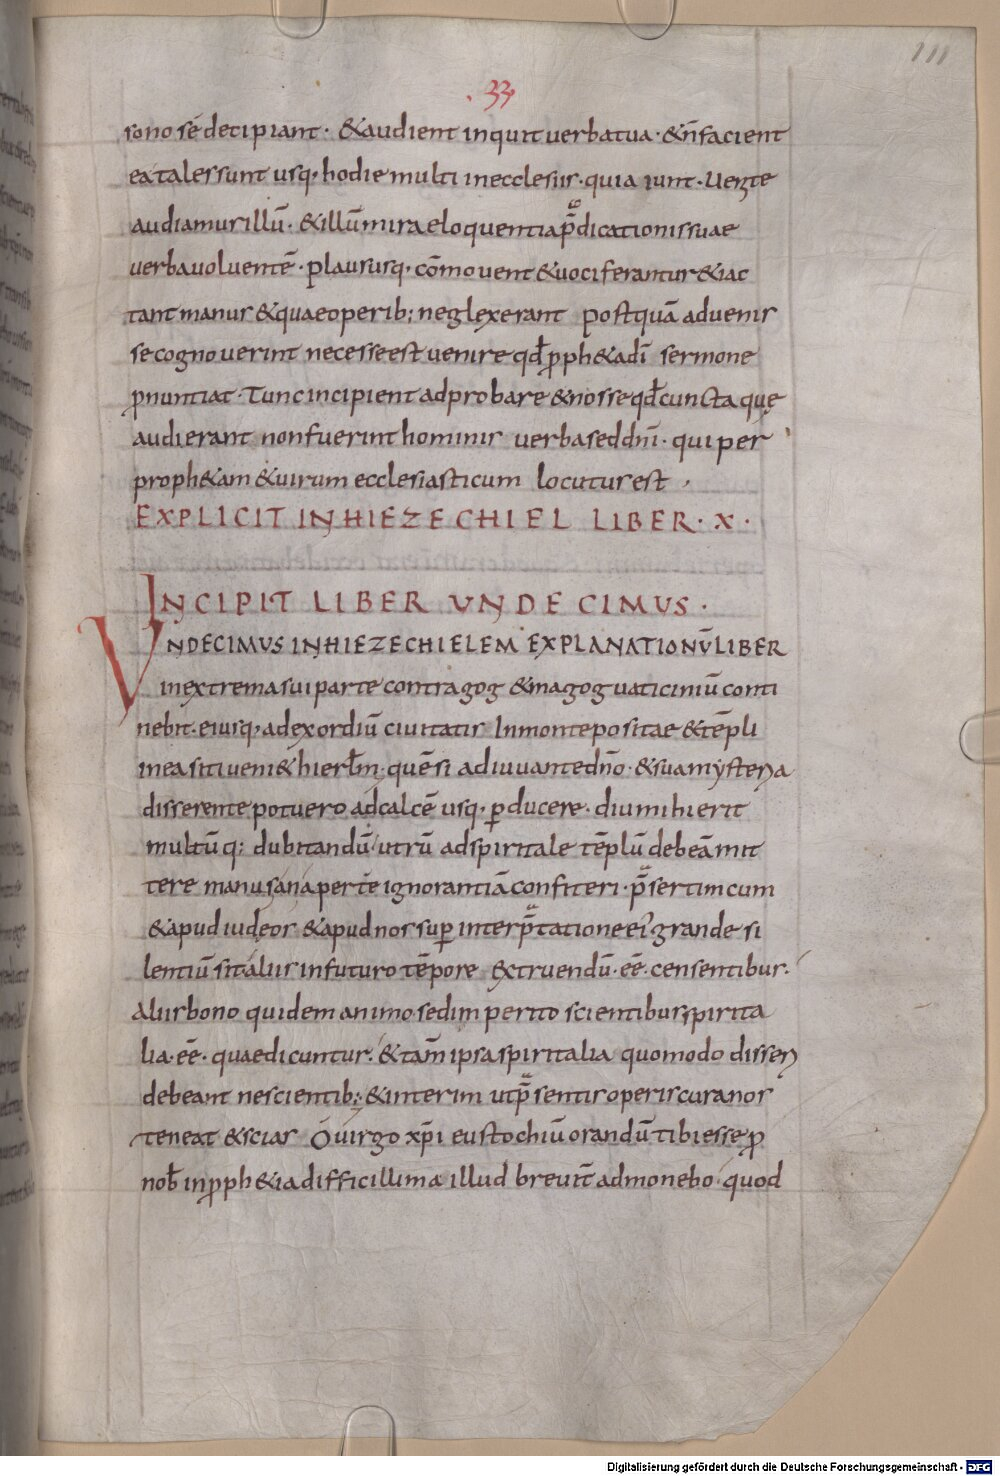 111
.33.
sono sē decipiant · &audient inquit verba tua · &n̄ facient
ea tales sunt usq; hodie multi in ecclesiis · quia iunt · Uenite
audiamus illū · &illū mira eloquentia p̄dicationis suae
verba voluentē · plausuſq; cōmovent & vociferantur & iac
tant manus & quae operib; neglexerant postquā advenis
se cognoverint necesse est venire qđ proph&a dī sermone
pnuntiat · Tunc incipient adprobare & nosse qđ cuncta quę
audierant non fuerint hominis verba sed dn̄i · qui per
proph&am & virum ecclesiasticum locutus est ·
EXPLICIT IN HIEZECHIEL LIBER · X ·
INCIPIT LIBER UNDECIMUS ·
VNDECIMUS IN HIEZECHIELEM EXPLANATIONŪ LIBER
in extrema sui parte contra gog & magog vaticiniū conti
nebit · eiusq; ad exordiū civitatis In monte positae & tēpli
in ea siti veni& hierłm · quē si adiuvante dn̄o · & sua mysteria
disserente potuero ad calcē usq; pducere · diu mihi erit
multūq; dubitandū utrū ad spiritale tēplū debeā mit
tere manus an apertē ignorantiā confiteri · p̄sertim cum
& apud iudęos & apud nos sup interp̄tatione ei' grande si
lentiū sit aliis in futuro tēpore extruendū · eē · censentibus ·
Aliis bono quidem animo sed imperito scientibus spirita
lia · eē · quae dicuntur · & tam̄ ipsa spiritalia quomodo disseri
debeant nescientib; · & interim ut p̄sentis operis cura nos
teneat & scias Ō virgo xp̄i eustochiū orandū tibi esse p
nob̄ in pph&ia difficillima illud brevit̄ admonebo · quod
Digitalisierung gefördert durch die Deutsche Forschungsgemeinschaft - DFG